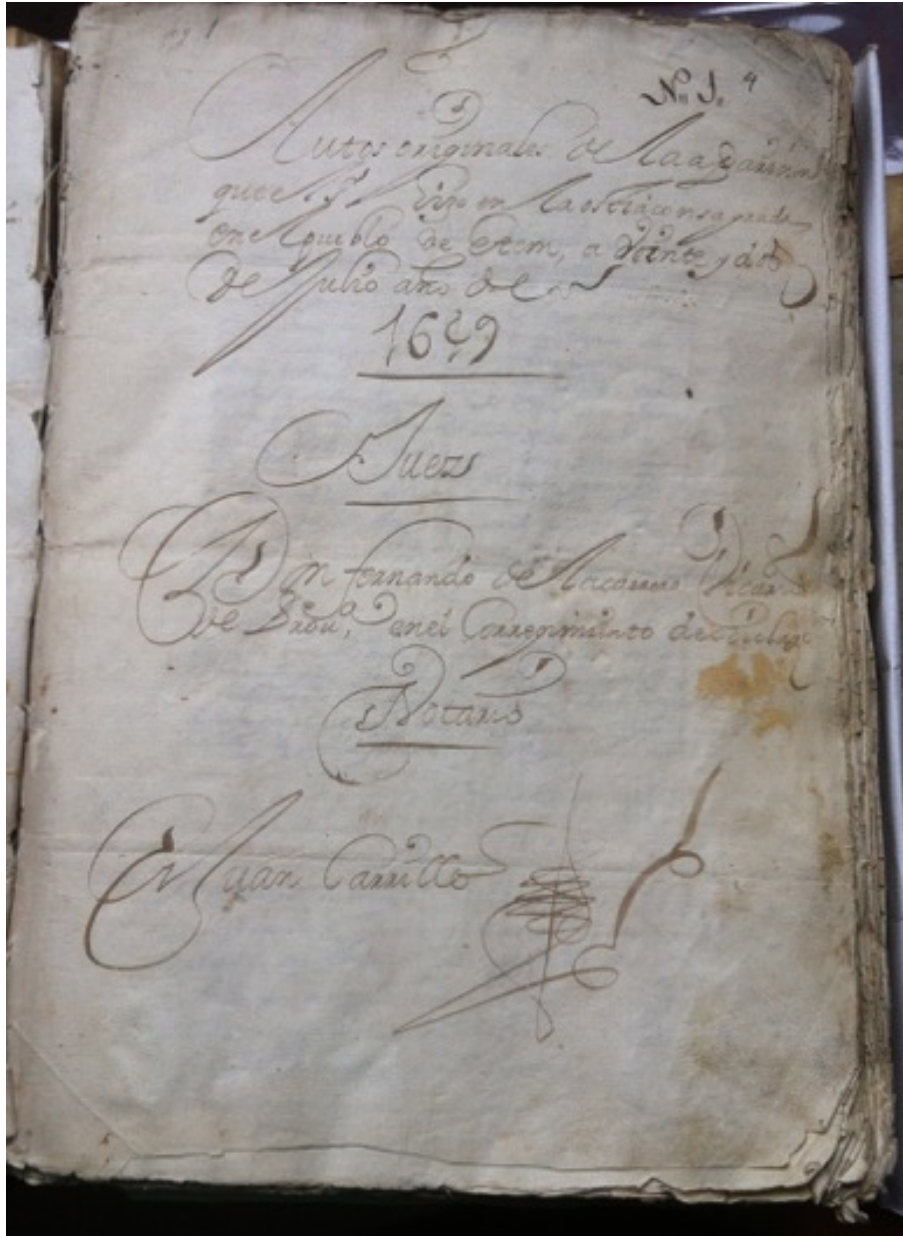 N. 1. 4
Autos originales de la aparicion
que N. S. hizo en la ostia consagrada
en el pueblo de Etem, a veinte y dos
de Julio año de
1649
Juez
Don fernando de Vicario
de Prou.ª, en el Corregimiento de
Notario
Juan Carrillo